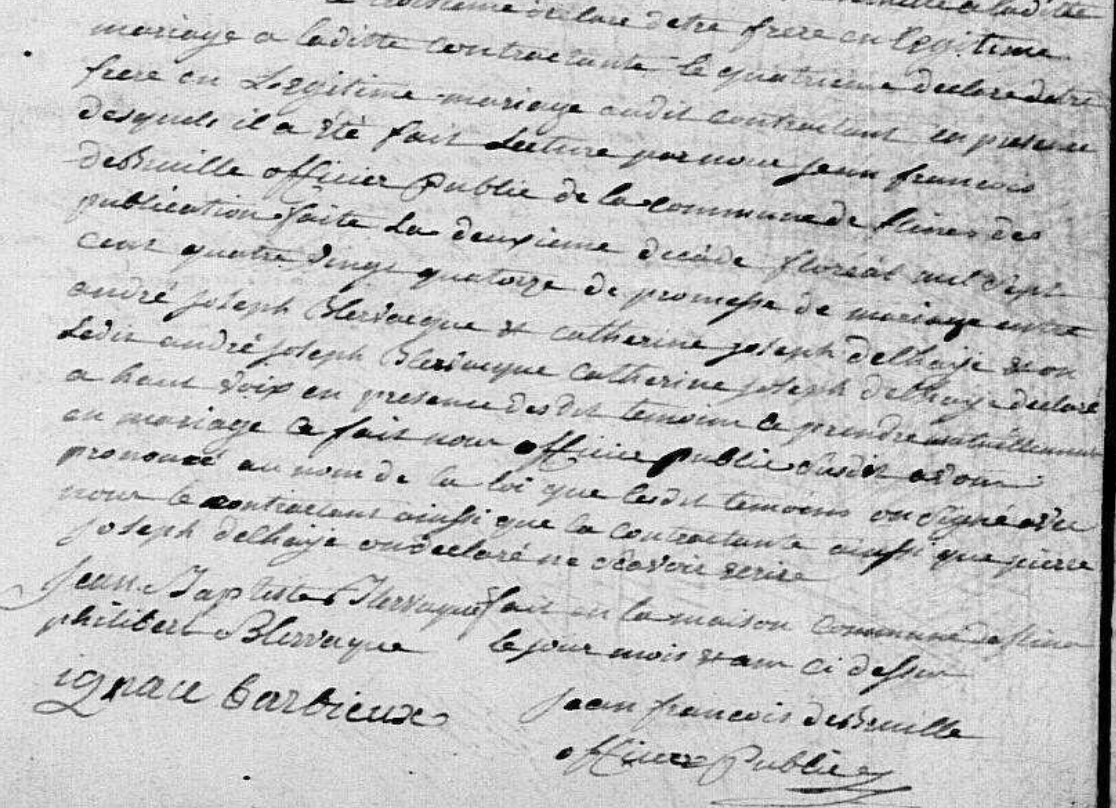 troisieme declare detre frere en legitime
mariage a laditte contractante le quatrieme declare detre
frere en Legitime mariage audit contractant en presence
desquels il a été fait Lecture par nous jean françois
deBruille officier Public de la commune de flines des
publication faite La deuxieme decade floréal mil sept
cent quatre vingt quatorze de promesse de mariage entre
andré joseph Blervacque et catherine joseph delhaije et on
Ledit andré joseph Blervacque catherine joseph delhaije declaré
a haut voix en presence desdit temoins ce prendre mutuellement
en mariage ce fait nous officier public susdit avons
prononcé au nom de la loi que lesdit temoins on signé avec
nous le contractant ainssi que la contractante aussi que pierre
joseph delhaije on declaré ne scavoir ecrire
fait en la maison commune de flines
le jour mois et an ci dessus
jean Baptiste Blervaque
philibert Blervaque
ignace barbieux
jean françois deBruille
officier Public